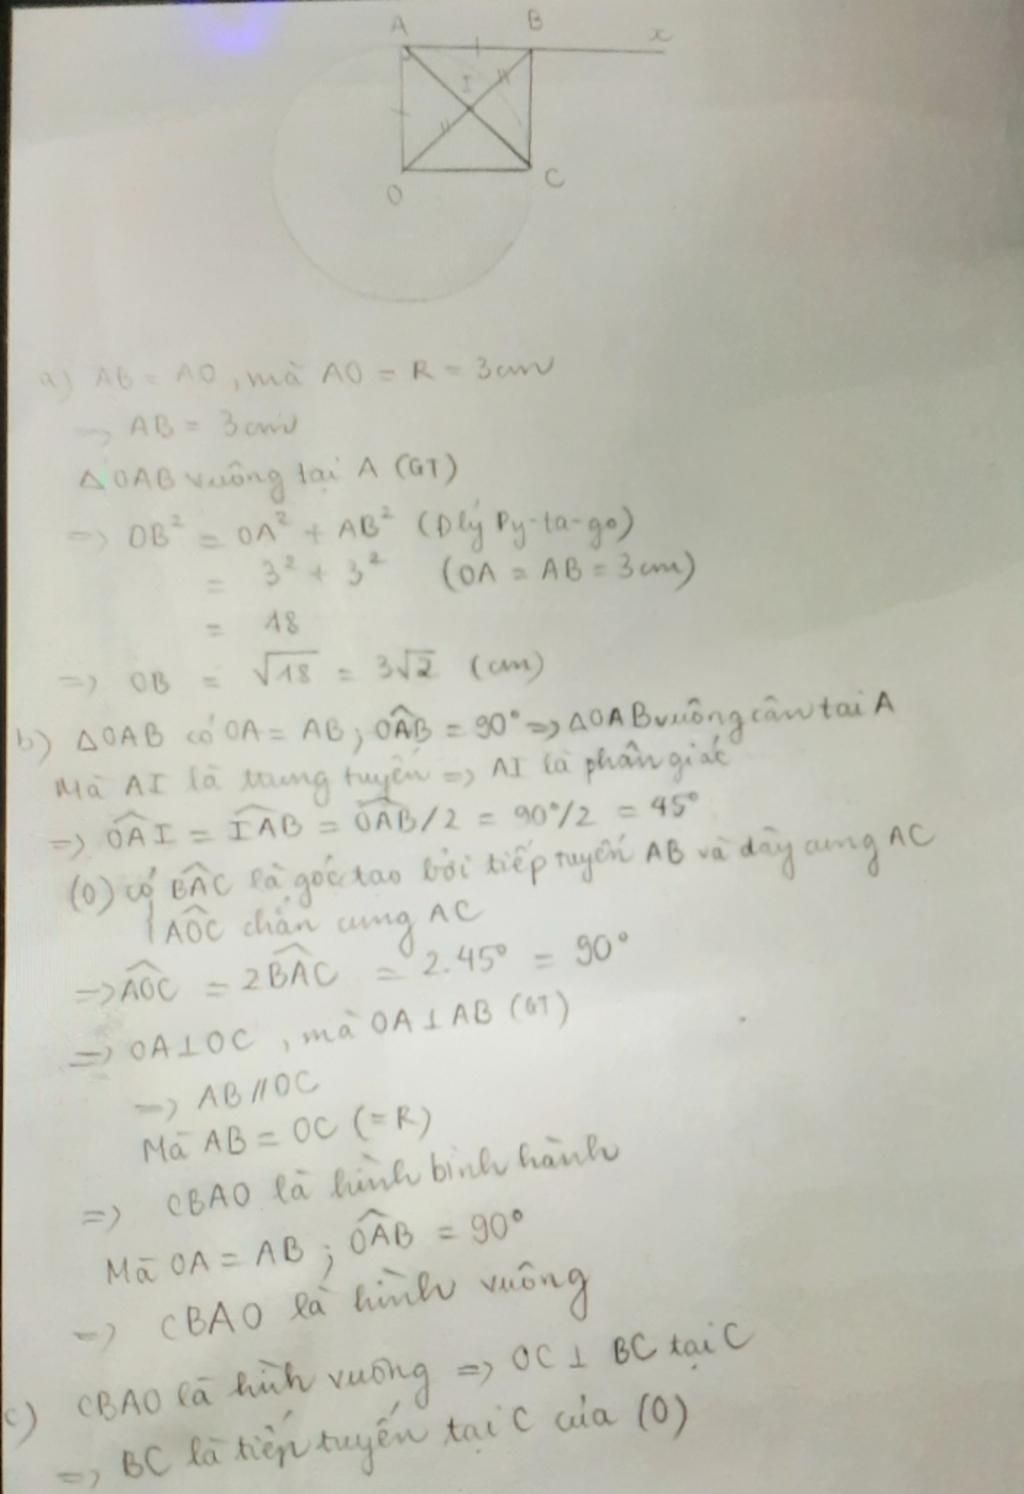 A B x
I
O C
a) AB = AO, mà AO = R = 3cm
=> AB = 3cm
△OAB vuông tại A (GT)
=> OB² = OA² + AB² (Dlý Py-ta-go)
= 3² + 3² (OA = AB = 3cm)
= 18
=> OB = √18 = 3√2 (cm)
b) △OAB có OA = AB; OÂB = 90° => △OAB vuông cân tai A
Mà AI là trung tuyến => AI là phân giác
=> OÂI = IÂB = OÂB/2 = 90°/2 = 45°
(O) có BÂC là góc tao bởi tiếp tuyến AB và dây cung AC
AÔC chắn cung AC
=> AÔC = 2BÂC = 2.45° = 90°
=> OA⊥OC, mà OA⊥AB (GT)
=> AB//OC
Mà AB = OC (=R)
=> CBAO là hình bình hành
Mà OA = AB; OÂB = 90°
=> CBAO là hình vuông
c) CBAO là hình vuông => OC ⊥ BC tại C
=> BC là tiếp tuyến tại C của (O)